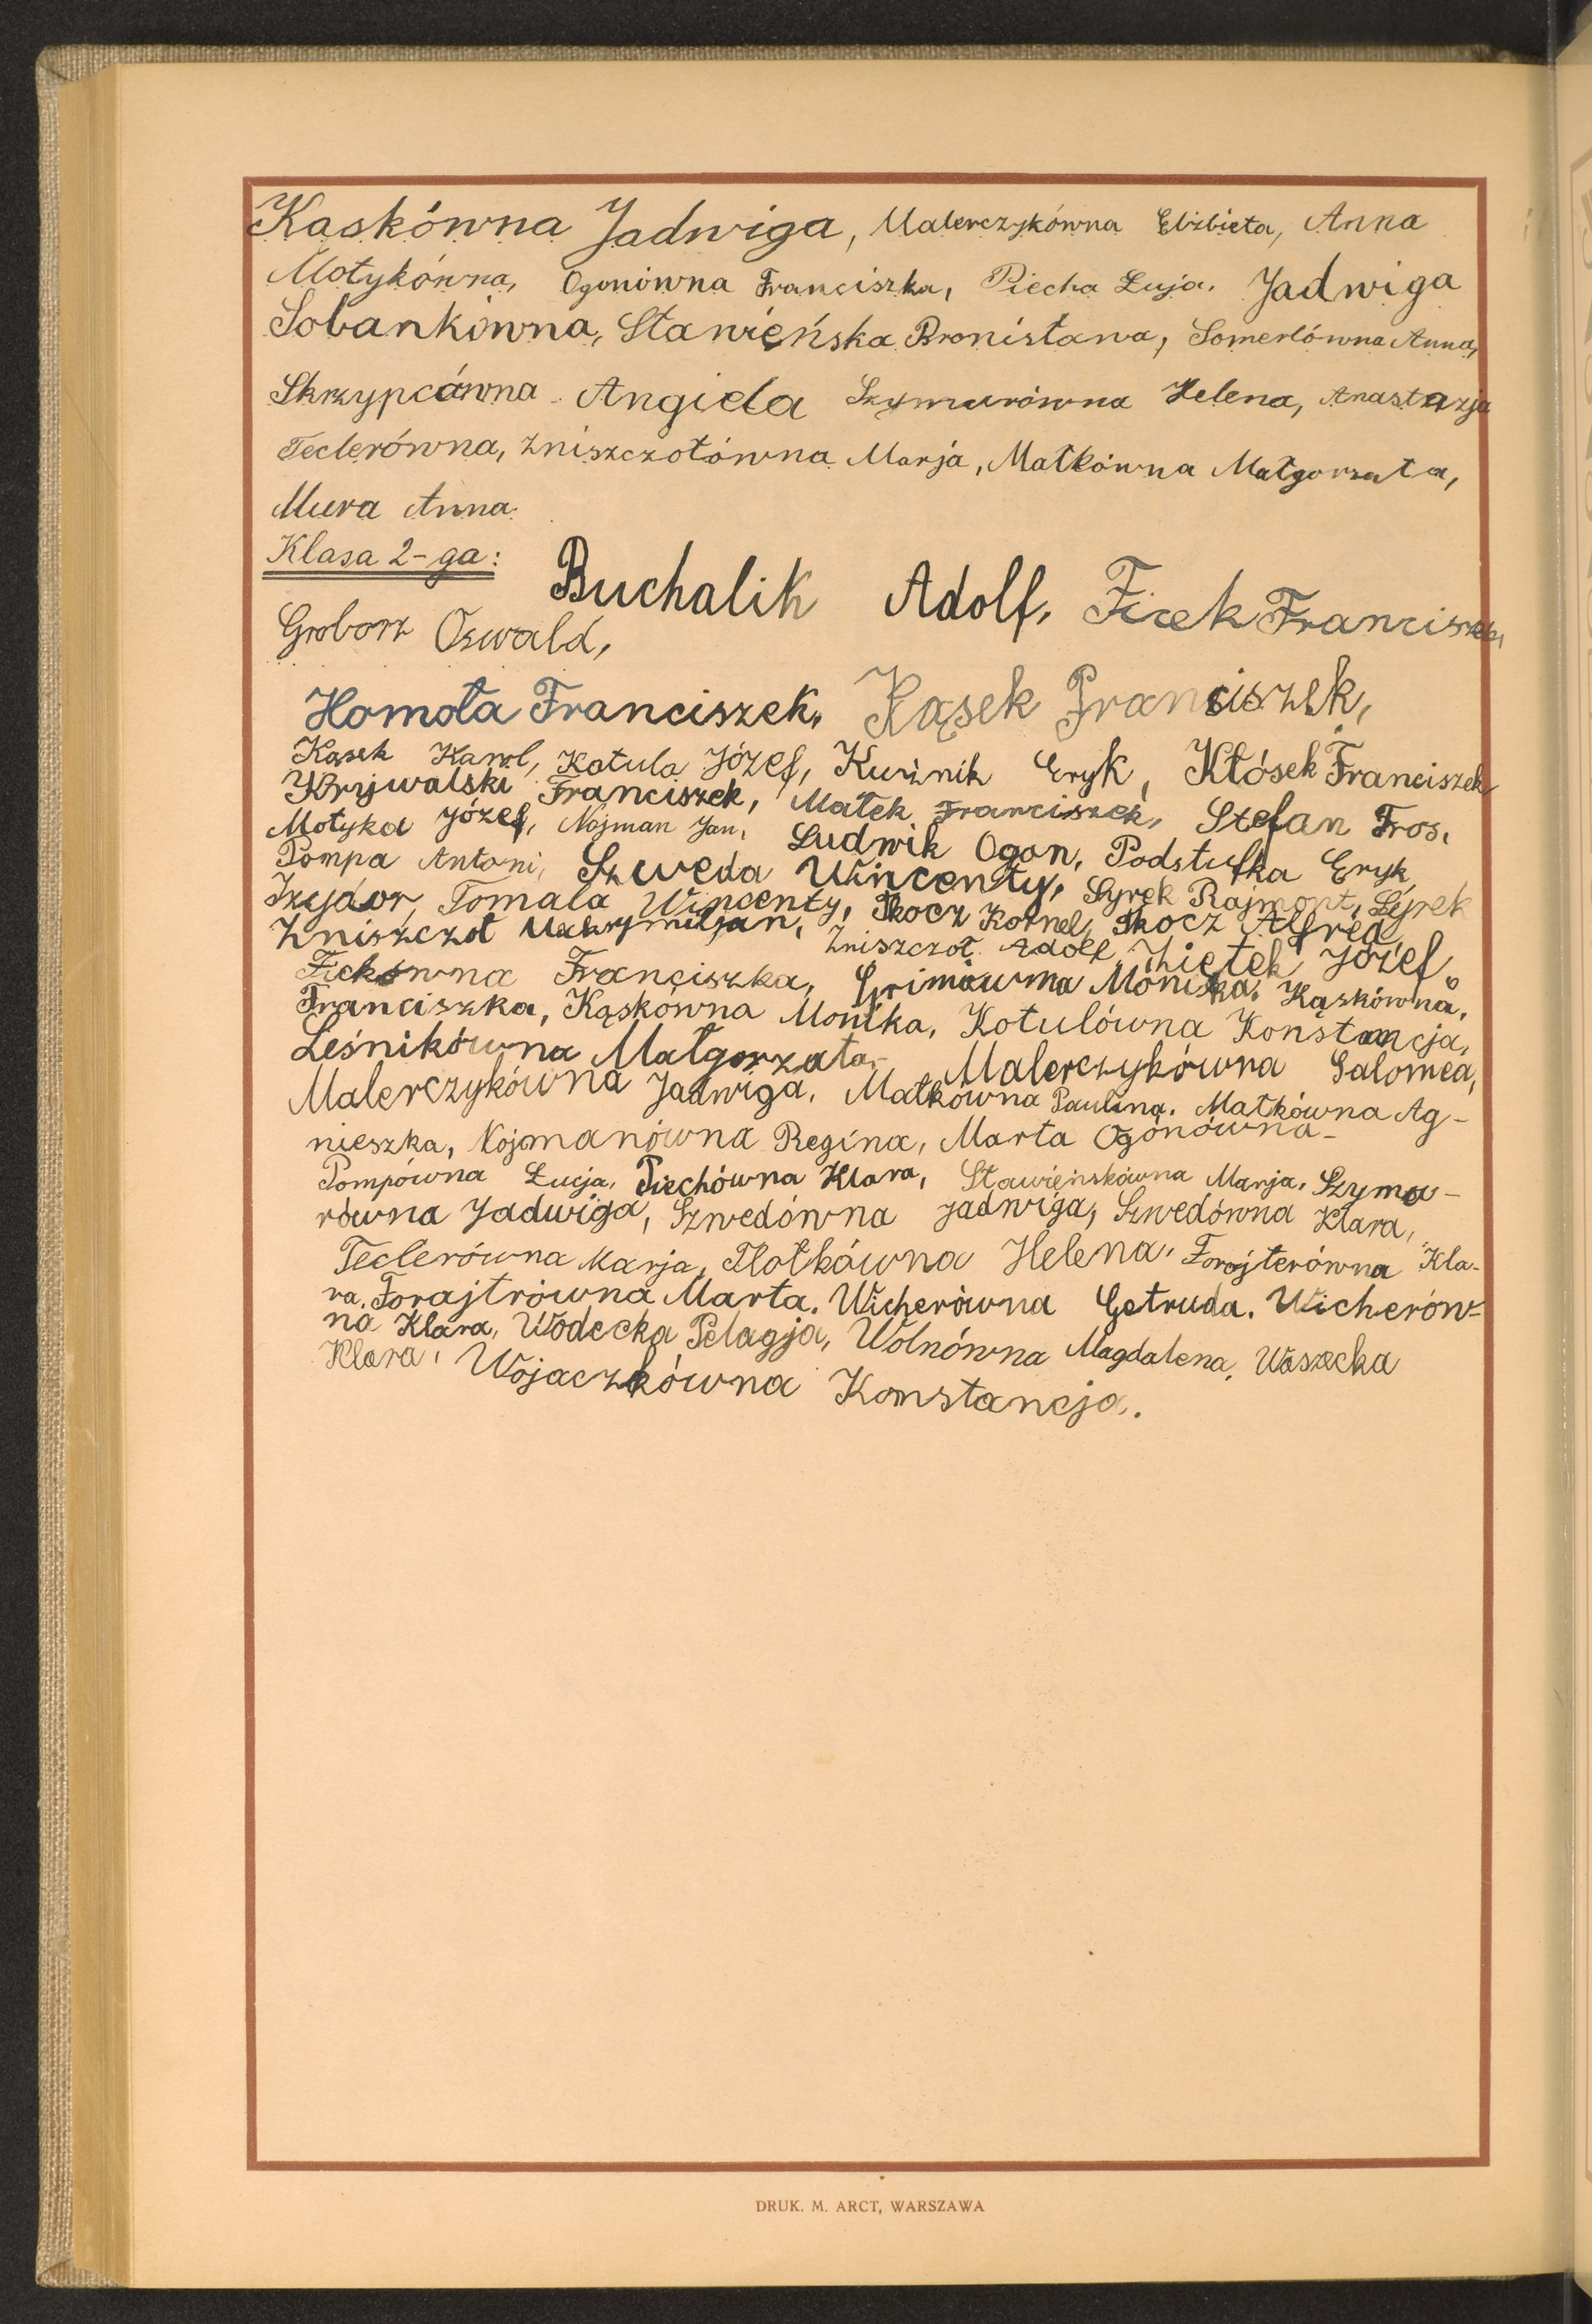 Kąskówna Jadwiga, Malerczykówna Elżbieta, Anna
Motykówna, Ogonówna Franciszka, Piecha Łuja. Jadwiga
Sobankówna, Stawieńska Bronisława, Somerlówna Anna,
Skrzypcówna Angiela Szymurówna Helena, Anastazja
Teclerówna, Zniszczołówna Marja, Małkówna Małgorzata,
Mura Anna.
Klasa 2-ga: Buchalik Adolf, Ficek Franciszek,
Groborz Oswald,
Homola Franciszek, Kąsek Franciszek,
Kąsek Karol, Kotula Józef, Kuźnik Eryk, Kłósek Franciszek
Krywalski Franciszek, Małek Franciszek, Stefan Fros,
Motyka Józef, Nojman Jan, Ludwik Ogon, Podstufka Eryk,
Pompa Antoni, Szweda Wincenty, Syrek Rajmont, Syrek
Izydor, Tomala Wincenty, Tkocz Kornel, Tkocz Alfred,
Zniszczoł Maksymiljan, Zniszczoł Adolf, Ziętek Józef.
Fickówna Franciszka, Grimówna Monika, Kąskówna
Franciszka, Kąskówna Monika, Kotulówna Konstancja,
Leśnikówna Małgorzata, Malerczykówna Salomea,
Malerczykówna Jadwiga, Małkówna Paulina. Małkówna Ag-
nieszka, Nojmanówna Regina, Marta Ogonówna-
Pompówna Łucja, Piechówna Klara, Stawieńskówna Marja, Szymu-
równa Jadwiga, Szwedówna Jadwiga, Szwedówna Klara,
Teclerówna Marja, Płotkówna Helena, Forajterówna Kla-
ra. Forajtrówna Marta. Wicherówna Getruda. Wicherów-
na Klara, Wodecka Pelagja, Wolnówna Magdalena, Wasecka
Klara, Wojaczkówna Konstancja.
DRUK. M. ARCT, WARSZAWA